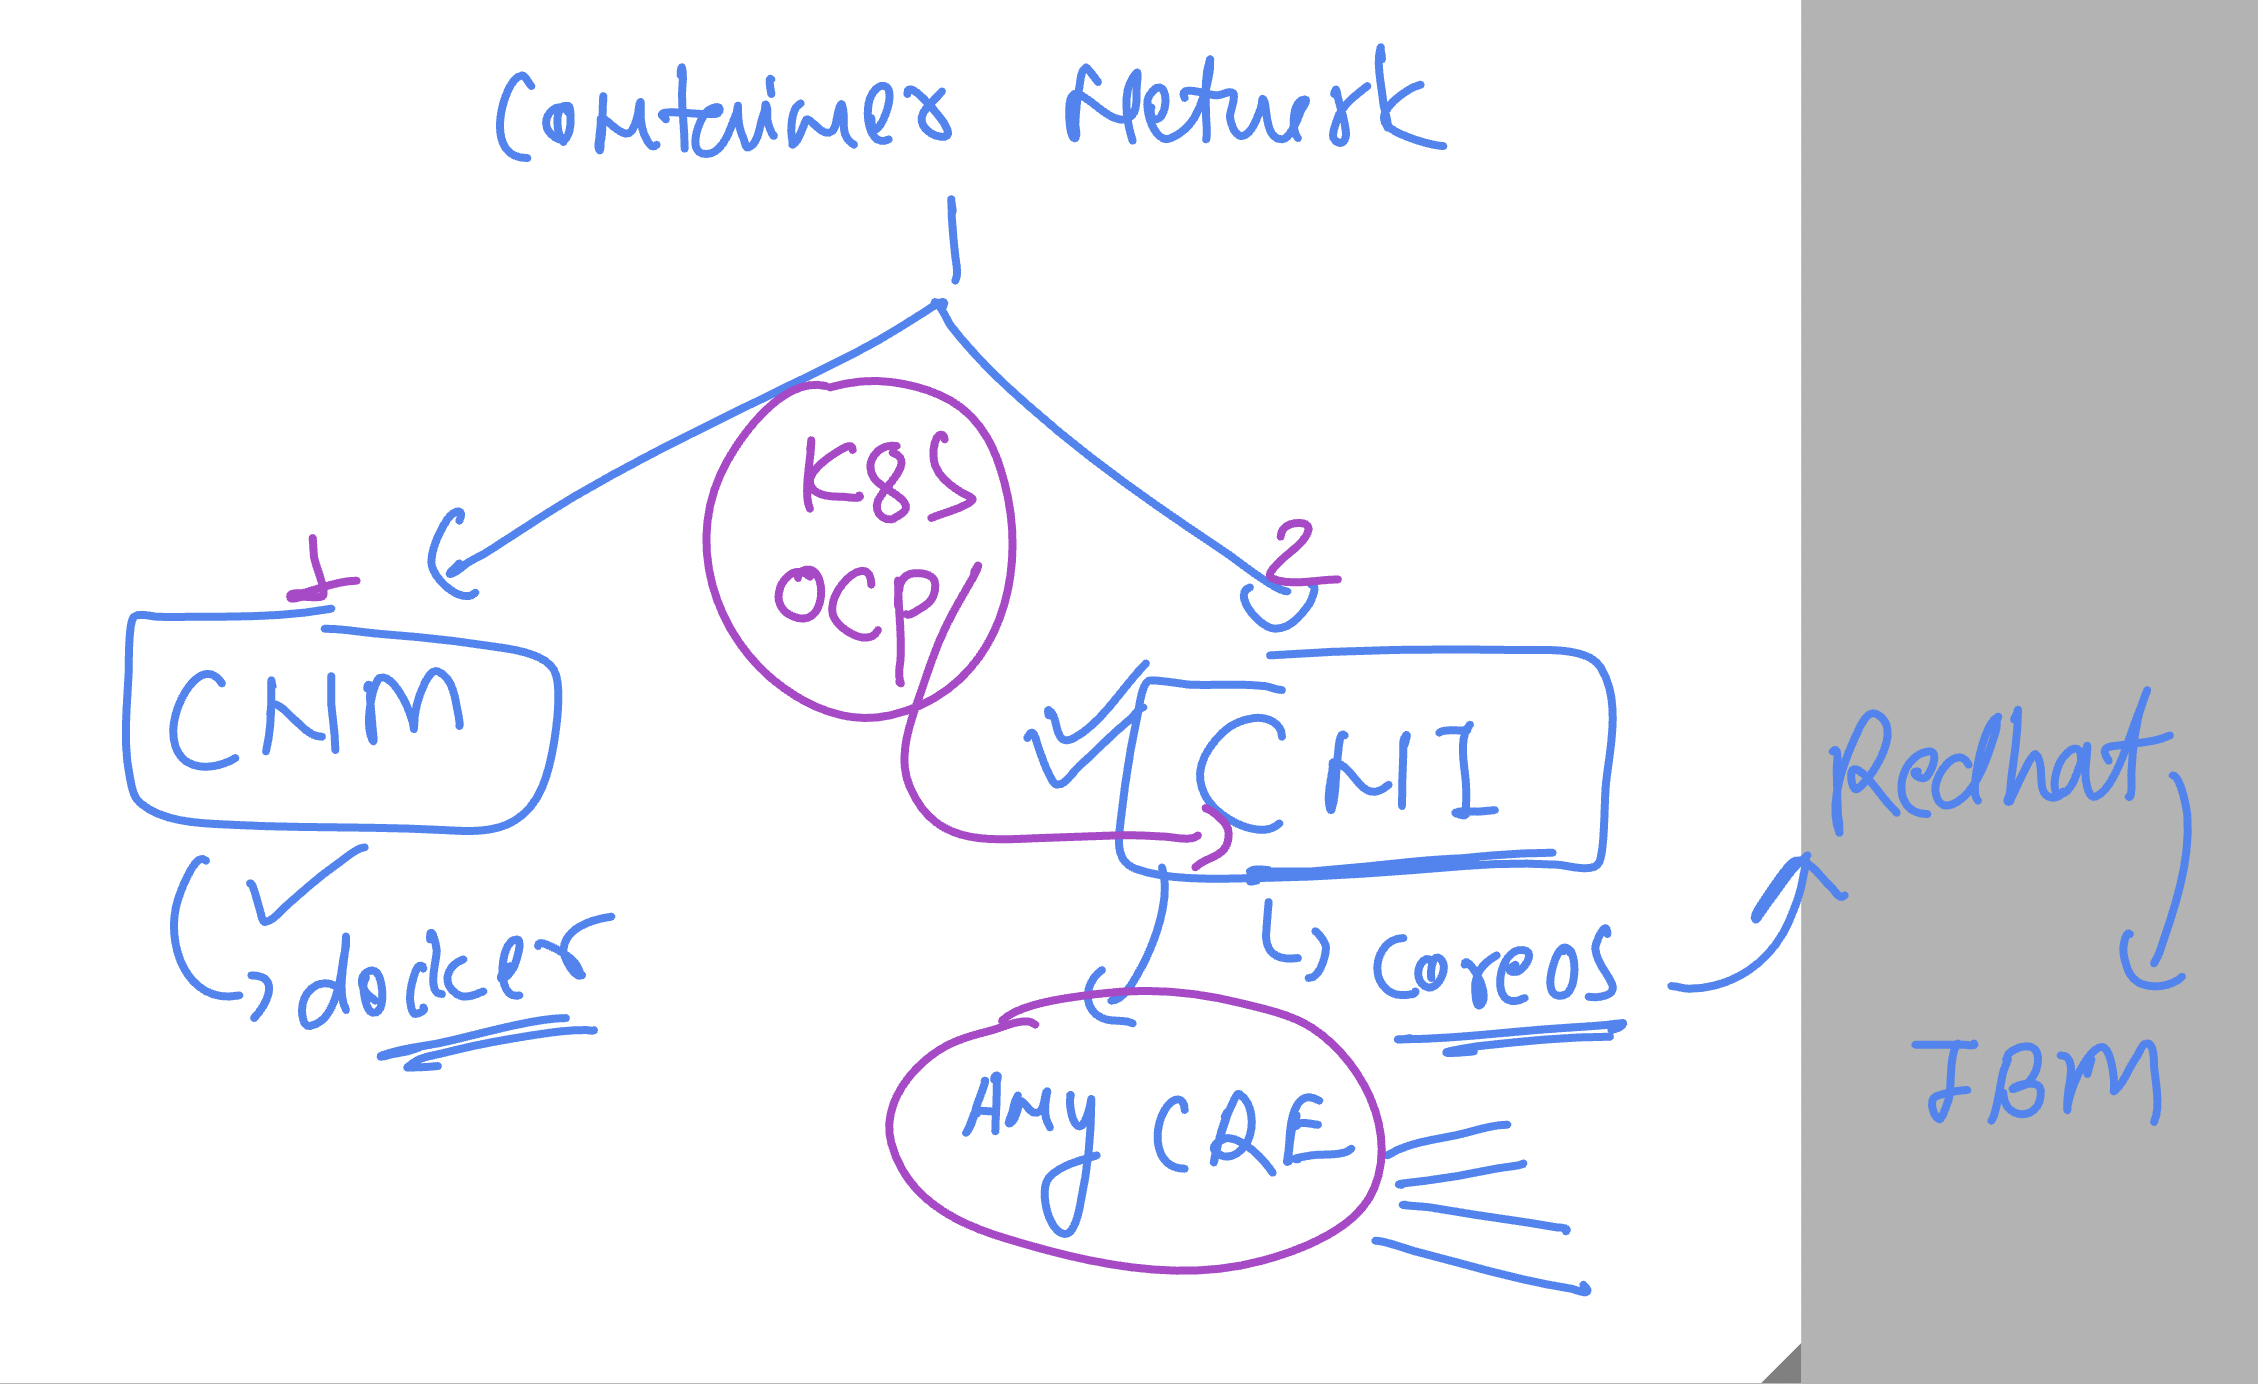 Container Network
K8S
OCP
1
2
CNM
CNI
docker
coreos
Redhat
IBM
Any CRE